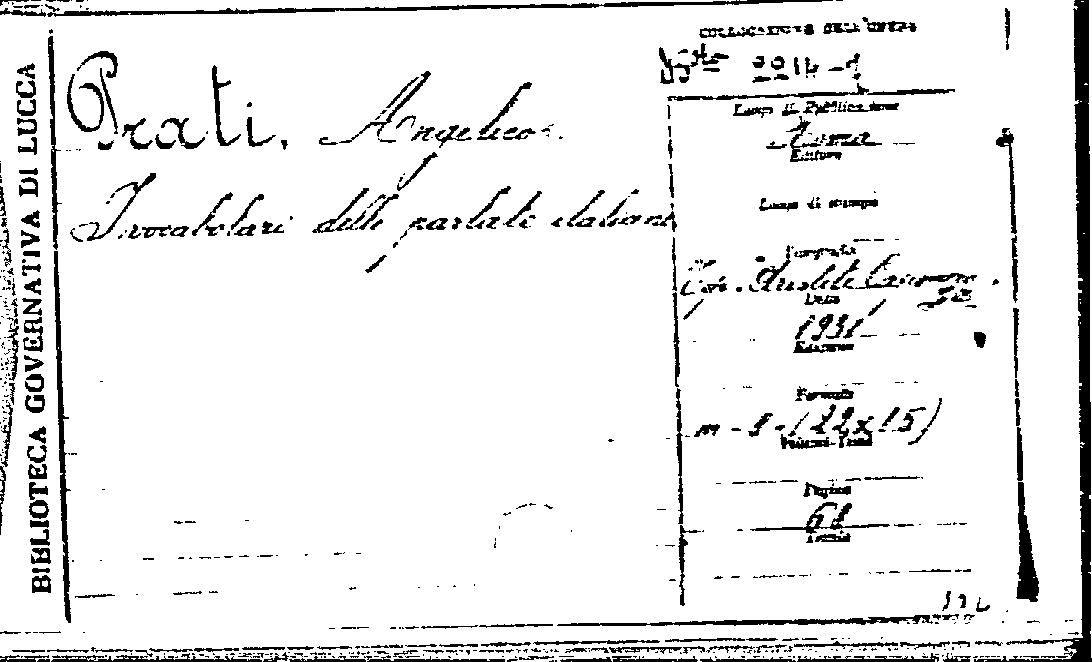 BIBLIOTECA GOVERNATIVA DI LUCCA
COLLOCAZIONE DELL'OPERA
Prati, Angelico.
I vocabolari delle parlate italiane
Luogo di Pubblicazione
Roma
Editore
Luogo di stampa
Tipografia
Tip.
Data
1931
Edizione
Formato
in - 8 - (22x15)
Volumi-Tomi
Pagine
68